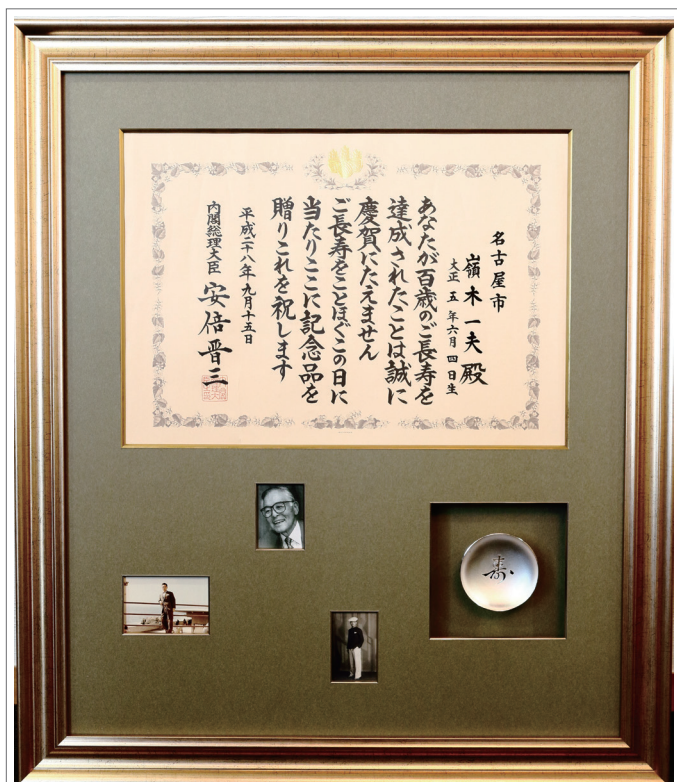 名古屋市
嶺木一夫殿
大正五年六月四日生
あなたが百歳のご長寿を
達成されたことは誠に
慶賀にたえません
ご長寿をことほぐこの日に
当たりここに記念品を
贈りこれを祝します
平成二十八年九月十五日
内閣総理大臣 安倍晋三
寿